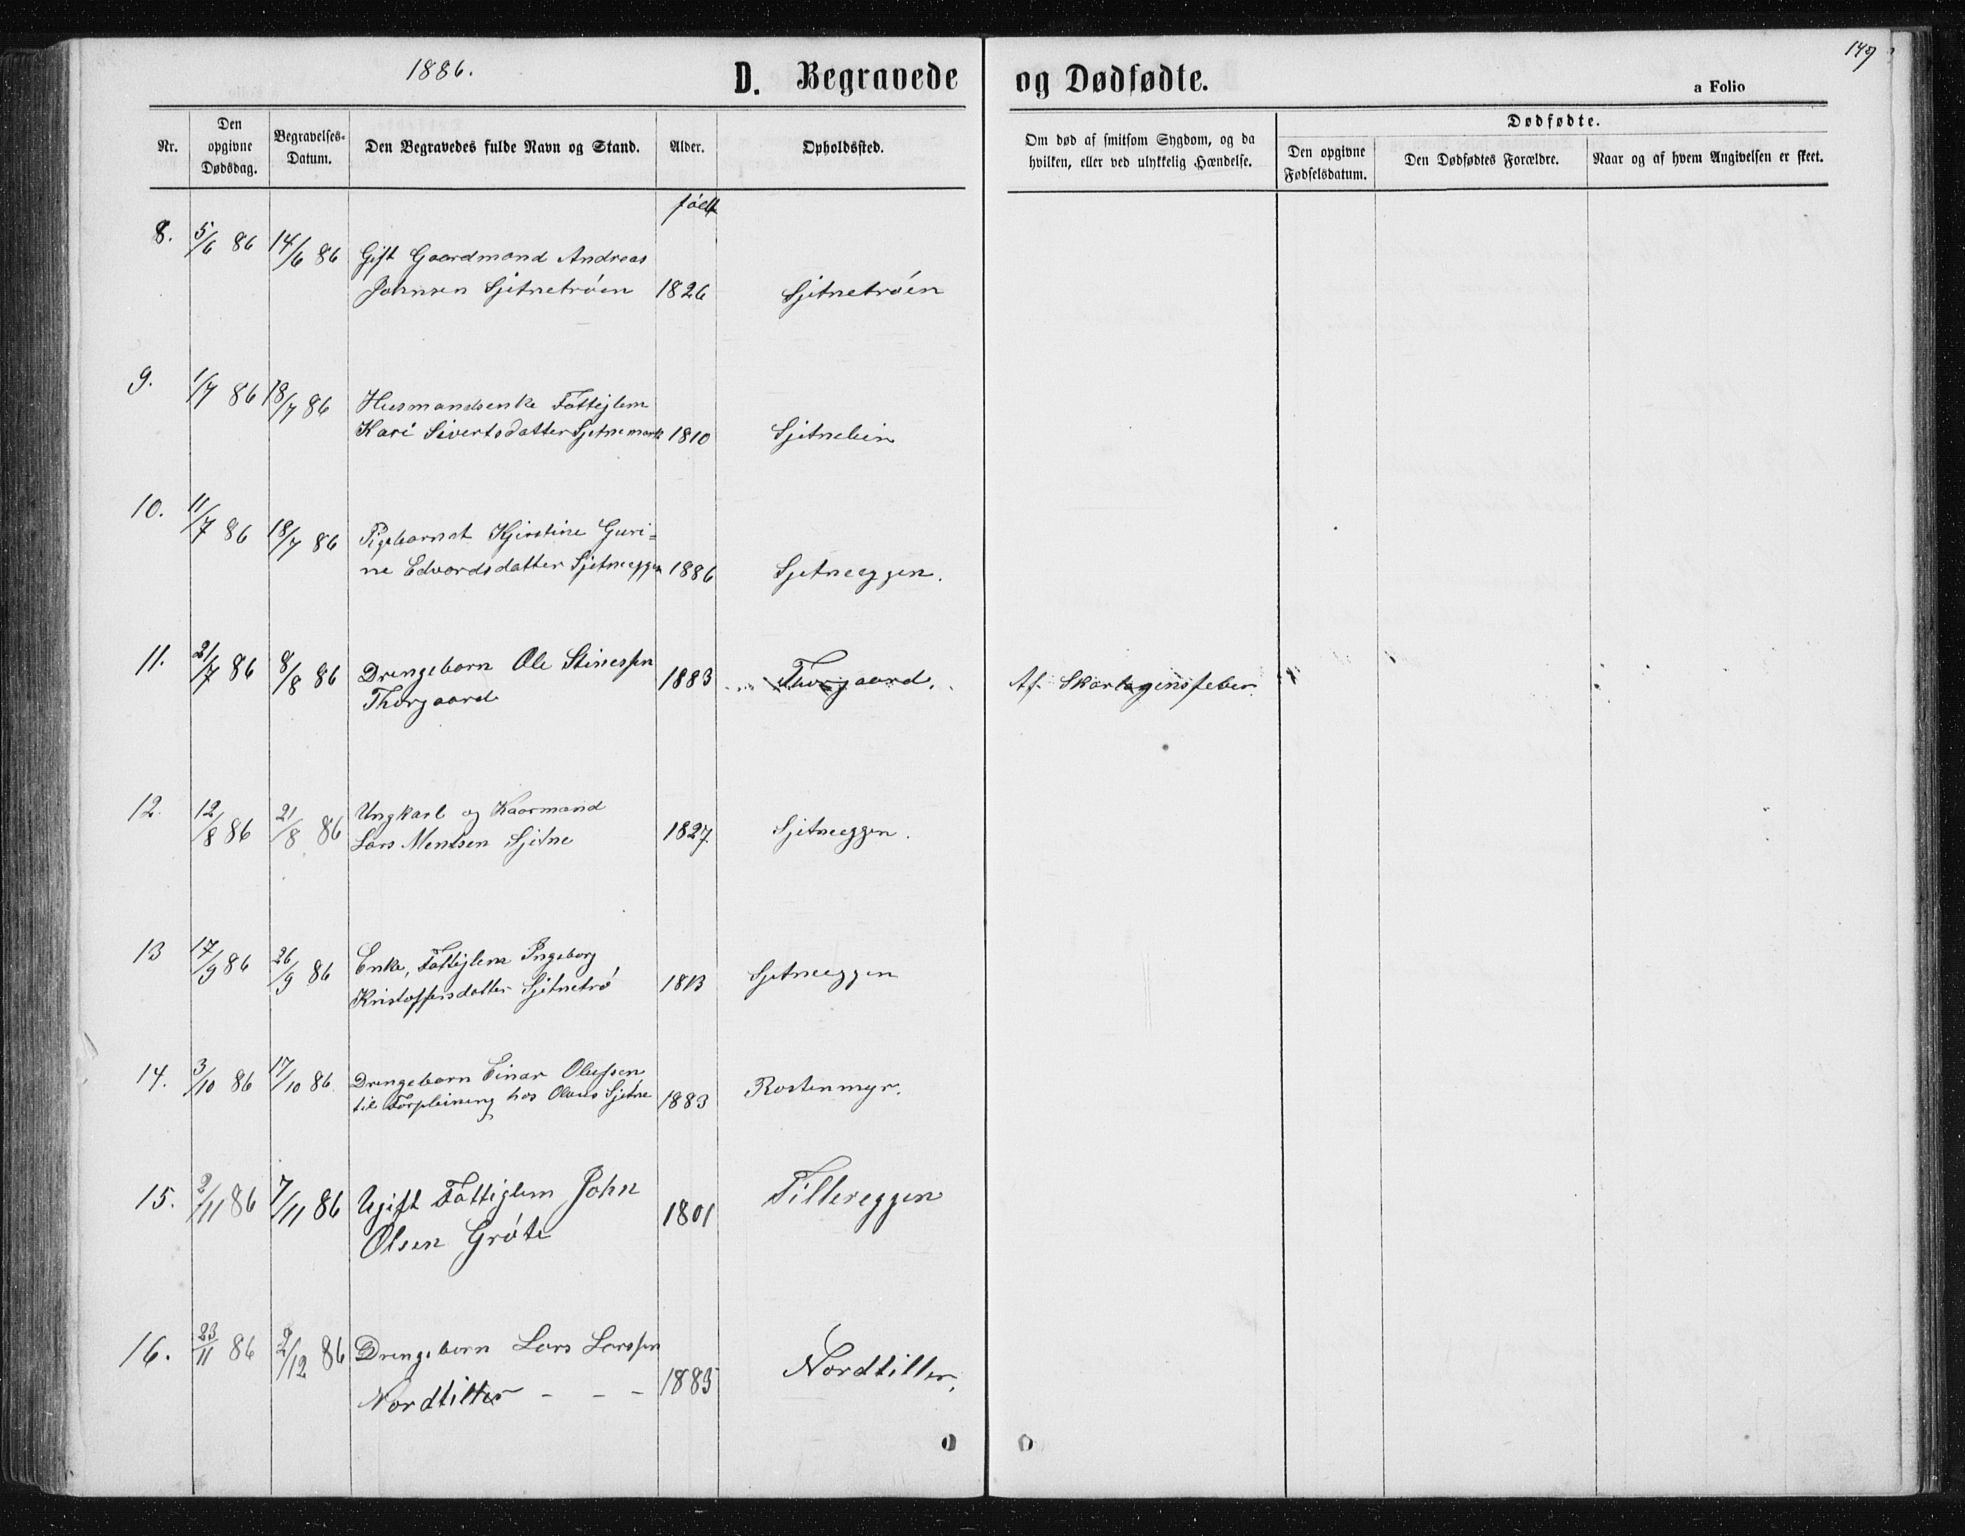 149
1886.
D. Begravede og Dødfødte.
a Folio
Nr.
Den opgivne Dødsdag.
Begravelses-Datum.
Den Begravedes fulde Navn og Stand.
Alder.
Opholdssted.
Om død af smitsom Sygdom, og da hvilken, eller ved ulykkelig Hændelse.
Dødfødte.
Den opgivne Fødselsdatum.
Den Dødfødtes Forældre.
Naar og af hvem Angivelsen er skeet.
født
8. 5/6 86 14/6 86 Gift Gaardmand Andreas
Johnsen Sjetnetrøen 1826 Sjetnetrøen
9. 1/7 86 18/7 86 Husmandsenke Fattiglem
Kari Sivertsdatter Sjetnemark 1810 Sjetnelien
10. 11/7 86 18/7 86 Pigebarnet Kjerstine Guri=
ne Edvardsdatter Sjetneeggen 1886 Sjetneeggen.
11. 21/7 86 8/8 86 Drengebarn Ole Stinessen
Thorgaard 1883 Thorgaard. Af Skarlagensfeber
12. 12/8 86 21/8 86 Ungkarl og Kaarmand
Lars Mentsen Sjetne 1827. Sjetneeggen.
13 17/9 86 26/9 86 Enke, Fattiglem Ingeborg
Kristoffersdatter Sjetnetrø 1813 Sjetneeggen
14. 3/10 86 17/10 86. Drengebarn Einar Olufsen
til Forpleining hos Olaus Sjetne 1883 Rostenmyr.
15. 2/11 86 7/11 86 Ugift Fattiglem John
Olsen Grøte 1801 Tillereggen
16. 23/11 86 2/12 86 Drengebarn Lars Larssen
Nordtiller - - - 1885 Nordtiller.